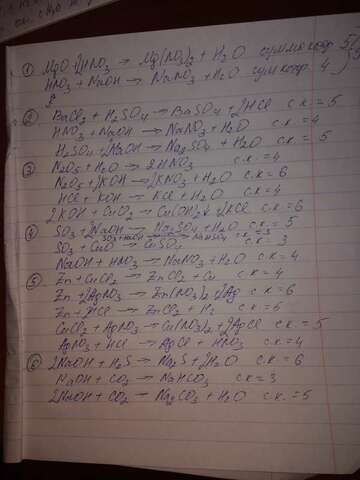 ① MgO + 2HNO₃ → Mg(NO₃)₂ + H₂O сумма коэф. 5
HNO₃ + NaOH → NaNO₃ + H₂O сум коэф. 4
② BaCl₂ + H₂SO₄ → BaSO₄ + 2HCl с.к. = 5
HNO₃ + NaOH → NaNO₃ + H₂O с.к. = 4
H₂SO₄ + 2NaOH → Na₂SO₄ + H₂O с.к. = 5
③ N₂O₅ + H₂O → 2HNO₃ с.к. = 4
N₂O₅ + 2KOH → 2KNO₃ + H₂O с.к. = 6
HCl + KOH → KCl + H₂O с.к. = 4
2KOH + CuCl₂ → Cu(OH)₂↓ + 2KCl с.к. = 6
④ SO₃ + 2NaOH → Na₂SO₄ + H₂O с.к. = 5
SO₃ + NaOH → NaHSO₄ с.к. = 3
SO₃ + CuO → CuSO₄ с.к. = 3
NaOH + HNO₃ → NaNO₃ + H₂O с.к. = 4
⑤ Zn + CuCl₂ → ZnCl₂ + Cu с.к. = 4
Zn + 2AgNO₃ → Zn(NO₃)₂ + 2Ag с.к. = 6
Zn + 2HCl → ZnCl₂ + H₂ с.к. = 5
CuCl₂ + AgNO₃ → Cu(NO₃)₂ + 2AgCl с.к. = 5
AgNO₃ + HCl → AgCl + HNO₃ с.к. = 4
⑥ 2NaOH + H₂S → Na₂S + 2H₂O с.к. = 6
NaOH + CO₂ → NaHCO₃ с.к. = 3
2NaOH + CO₂ → Na₂CO₃ + H₂O с.к. = 5